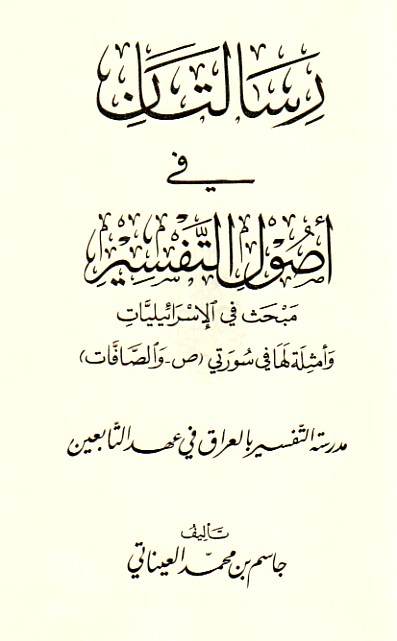 رِسَالَتَانِ
في
أُصُوْلِ التَّفْسِيْرِ
مَبْحَث في الإِسْرَائِيليَّاتِ
وَأَمثِلَة لهَا في سُورَتي (ص - وَالصَّافَّات)
مدرسة التفسير بالعراق في عهد التابعين
تأليف
جاسم بن محمد العيناتي